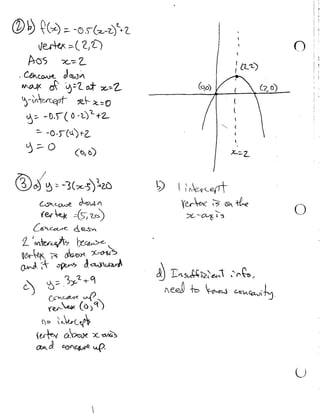 ② b) f(x) = -0.5(x-2)²+2
vertex = (2,2)
AOS x=2
. Concave down
max of y=2 at x=2
y-intercept set x=0
y = -0.5(0-2)²+2
= -0.5(4)+2
y = 0
(0,0)
(2,2)
(0,0)
(2,0)
x=2
③ a) y = -3(x-5)²+20
concave down
vertex = (5,20)
Concave down
2 intercepts because
vertex is above x-axis
and it opens downward
c) y = 3x²+9
concave up
vertex (0,9)
no intercepts
vertex above x-axis
and concave up.
b) 1 intercept
Vertex is on the
x-axis
d) Insufficient info,
need to know concavity.